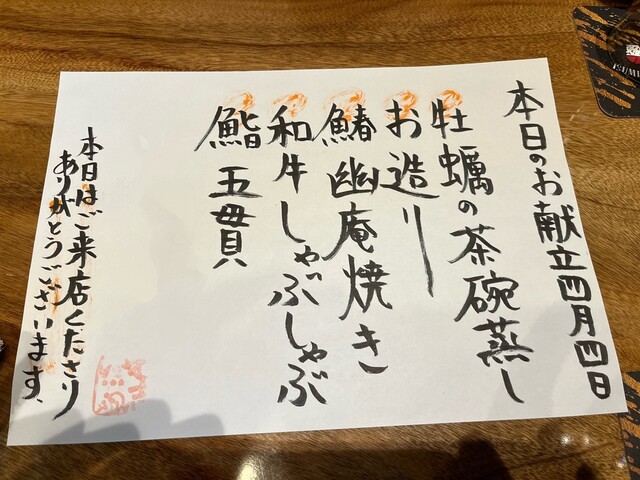 本日のお献立四月四日
牡蠣の茶碗蒸し
お造り
鰆幽庵焼き
和牛しゃぶしゃぶ
鮨五貫
本日はご来店くださり
ありがとうございます、